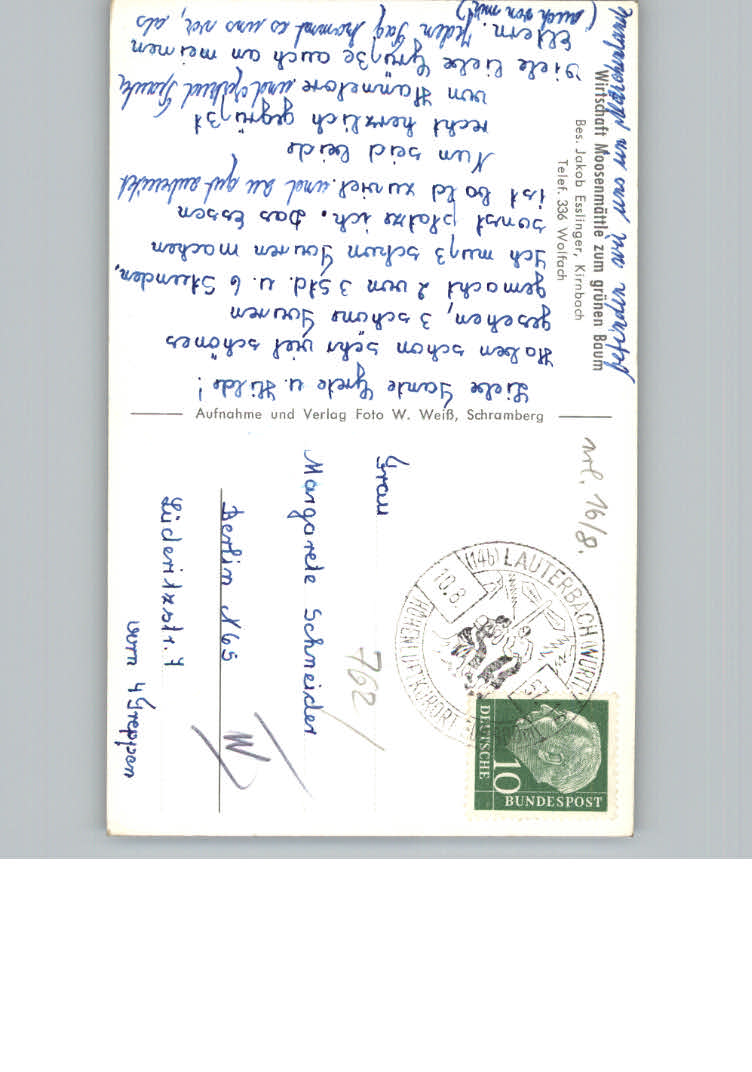 Wirtschaft Moosenmättle zum grünen Baum
Bes. Jakob Esslinger, Kirnbach
Telef. 336 Wolfach
Liebe Tante Grete u. Hilde!
Haben schon sehr viel schönes
gesehen, 3 schöne Touren
gemacht 2 von 3 Std. u. 6 Stunden.
Ich muß schon Touren machen
sonst platze ich. Das Essen
ist bald zuviel. und zu gut zubereitet
Nun seid beide
recht herzlich gegrüßt
von Hannelore. und
Viele liebe Grüße auch an meinen
Eltern. Jeden Tag kommt es uns vor, als
(auch von mir)
Aufnahme und Verlag Foto W. Weiß, Schramberg
nrl. 16/8.
(14b) LAUTERBACH (WÜRTT)
HÖHENLUFTKURORT
10.8.
DEUTSCHE
10
BUNDESPOST
Frau
Margarete Schneider
762
Berlin N65
W
Lüderitzstr. 4
vorn 4 Treppen